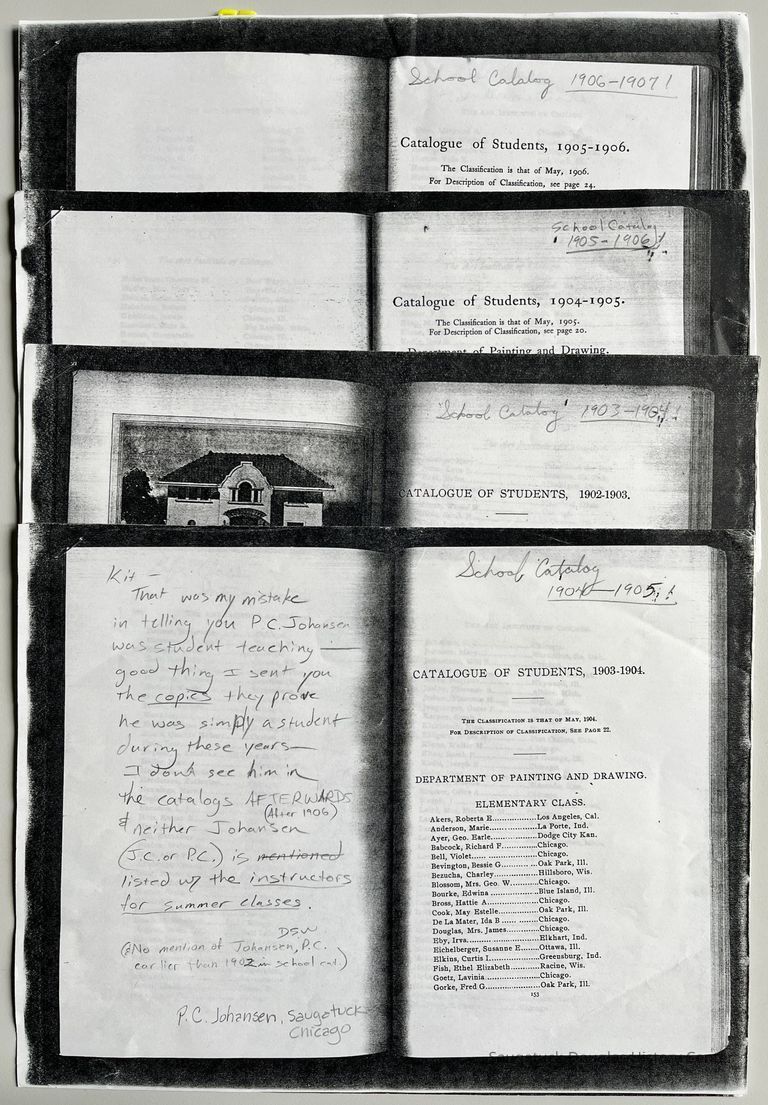 School Catalog 1906-1907!
Catalogue of Students, 1905-1906.
The Classification is that of May, 1906.
For Description of Classification, see page 24.
School Catalog
1905-1906!
Catalogue of Students, 1904-1905.
The Classification is that of May, 1905.
For Description of Classification, see page 20.
Department of Painting and Drawing.
"School Catalog" 1903-1904!
CATALOGUE OF STUDENTS, 1902-1903.
Kit —
That was my mistake
in telling you P.C. Johansen
was student teaching —
good thing I sent you
the copies they prove
he was simply a student
during these years —
I don't see him in
the catalogs AFTERWARDS
(After 1906)
& neither Johansen
(J.C. or P.C.) is mentioned
listed w/ the instructors
for summer classes.
DSW
(No mention of Johansen, P.C.
earlier than 1902 in school cat.)
P.C. Johansen, Saugatuck
Chicago
School Catalog
1904-1905!
CATALOGUE OF STUDENTS, 1903-1904.
THE CLASSIFICATION IS THAT OF MAY, 1904.
FOR DESCRIPTION OF CLASSIFICATION, SEE PAGE 22.
DEPARTMENT OF PAINTING AND DRAWING.
ELEMENTARY CLASS.
Akers, Roberta E. Los Angeles, Cal.
Anderson, Marie La Porte, Ind.
Ayer, Geo. Earle Dodge City Kan.
Babcock, Richard F. Chicago.
Bell, Violet Chicago.
Bevington, Bessie G. Oak Park, Ill.
Bezucha, Charley Hillsboro, Wis.
Blossom, Mrs. Geo. W. Chicago.
Bourke, Edwina Blue Island, Ill.
Bross, Hattie A. Chicago.
Cook, May Estelle Oak Park, Ill.
De La Mater, Ida B. Chicago.
Douglas, Mrs. James Chicago.
Eby, Iva Elkhart, Ind.
Eichelberger, Susanne E. Ottawa, Ill.
Elkins, Curtis I. Greensburg, Ind.
Fish, Ethel Elizabeth Racine, Wis.
Goetz, Lavinia Chicago.
Gorke, Fred G. Oak Park, Ill.
153